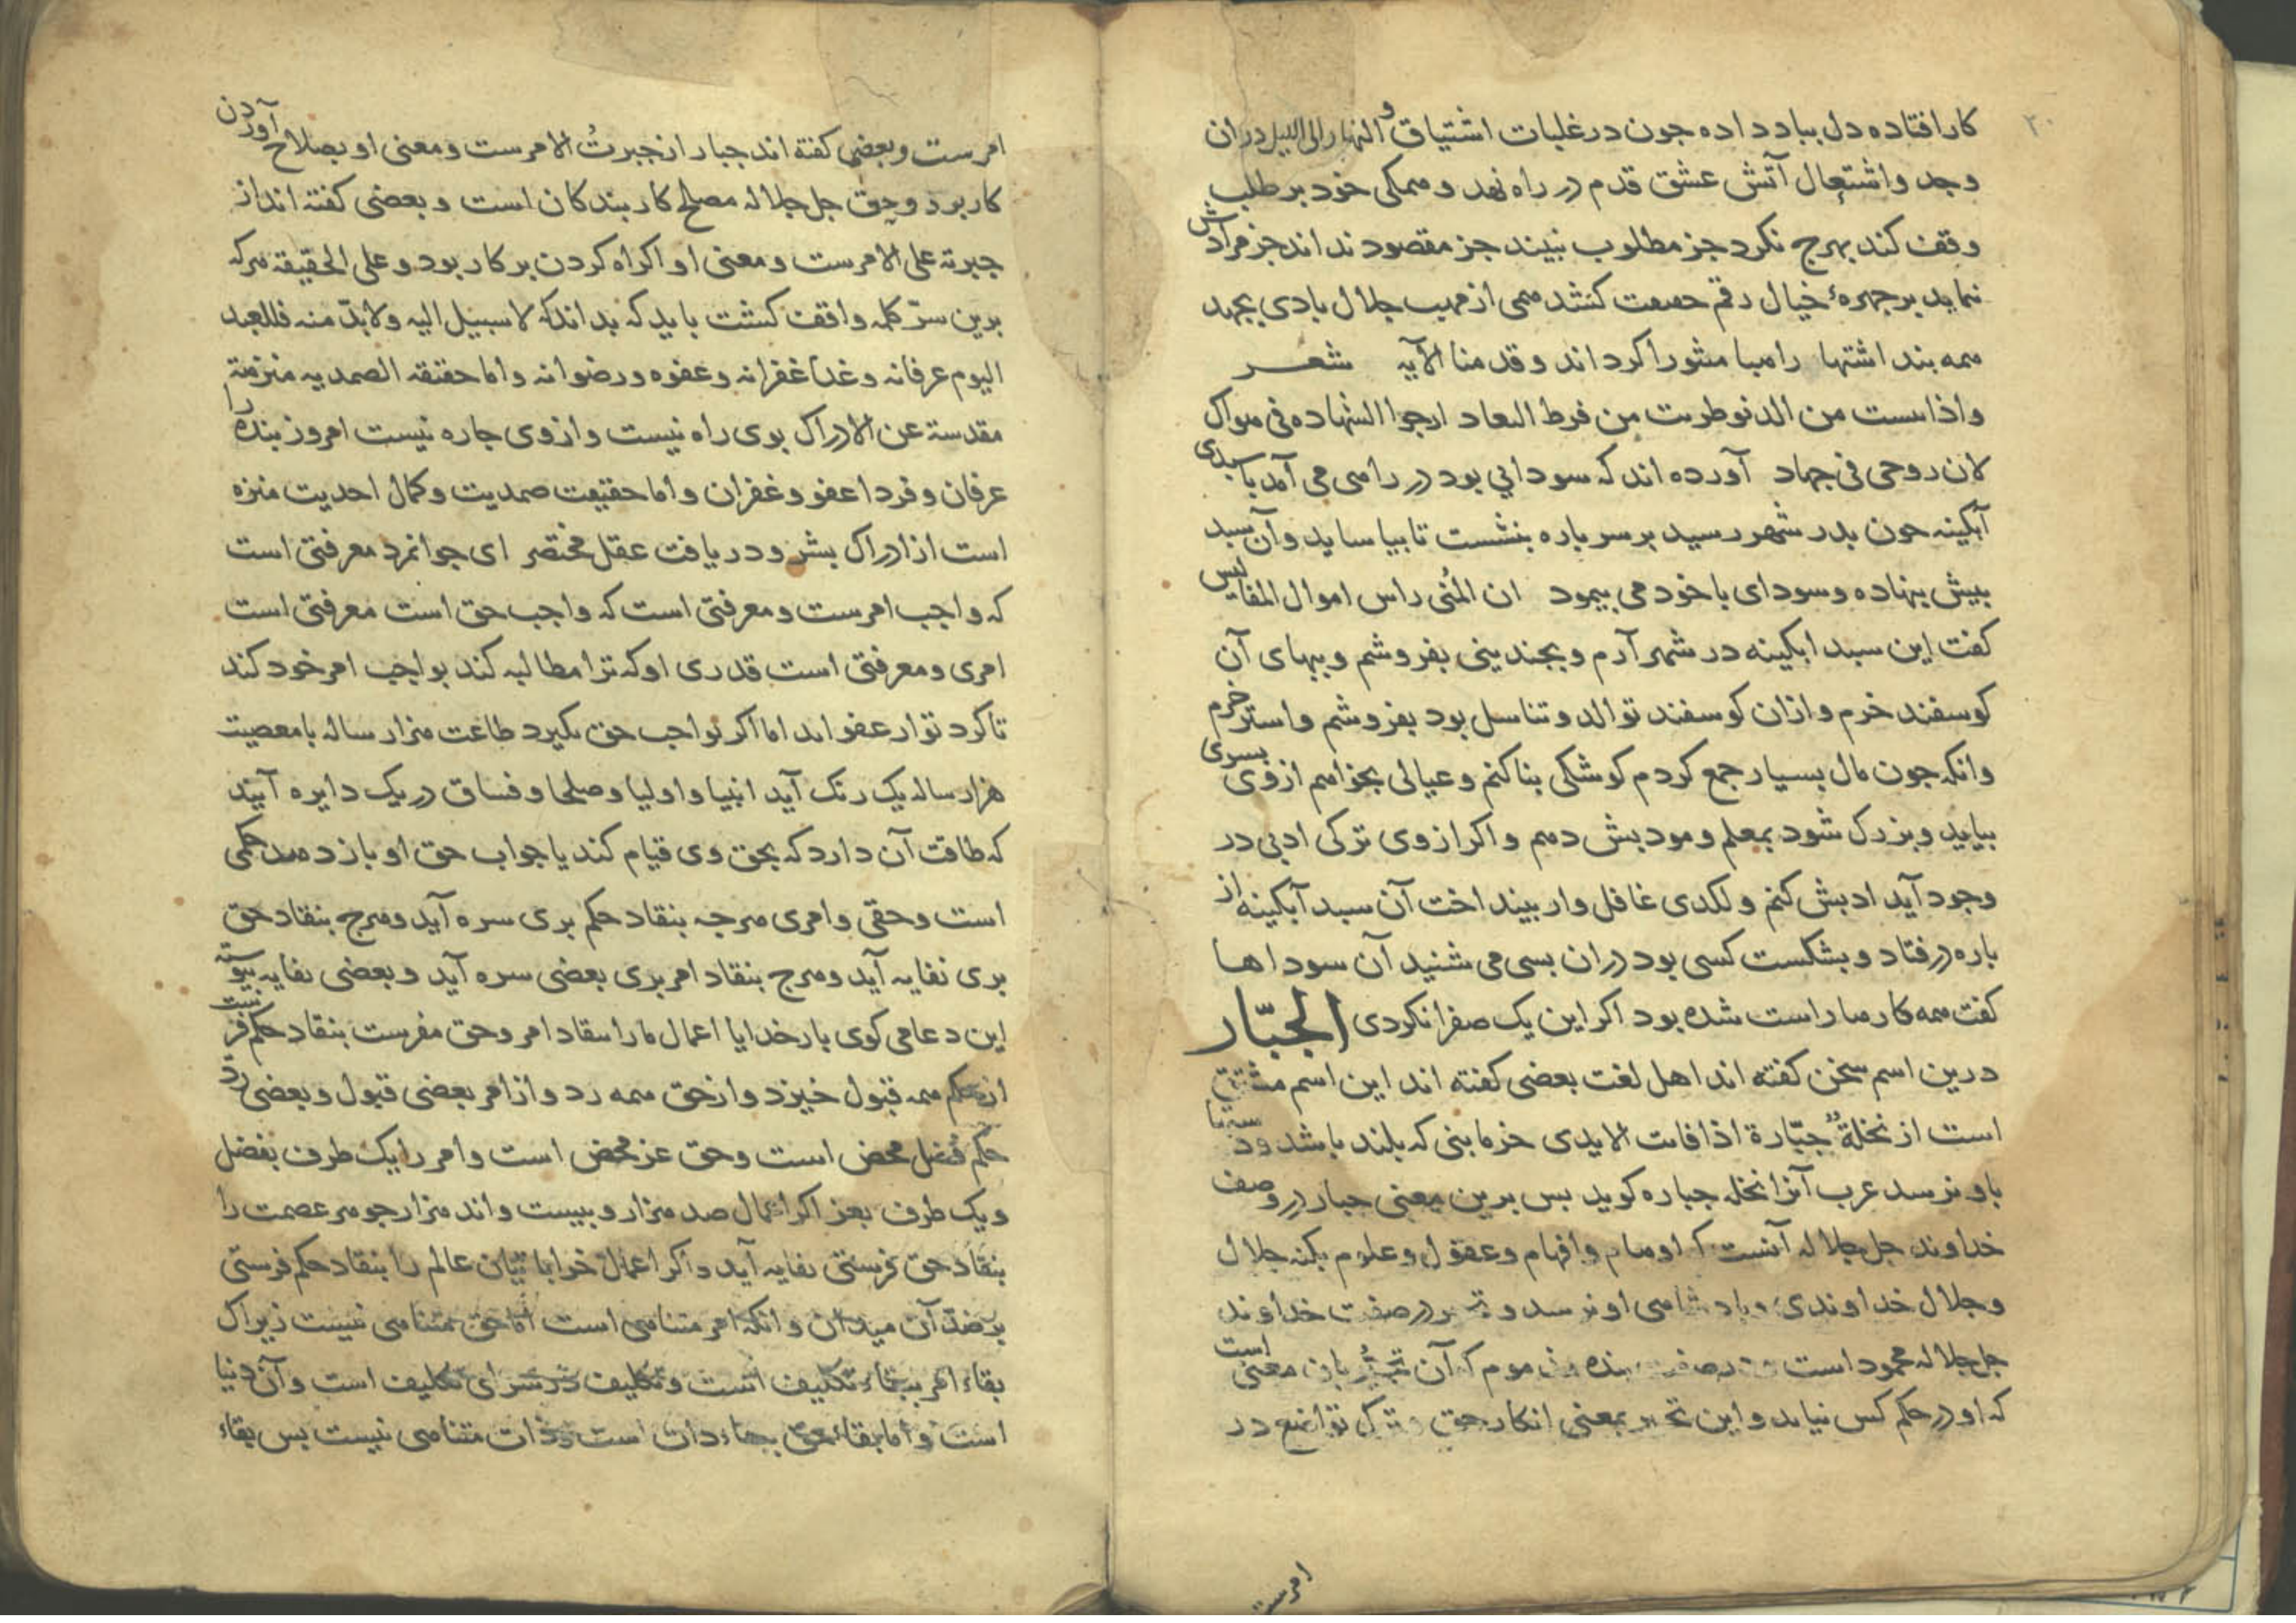 ۲۰
کار افتاده دل بباد داده جون در غلبات اشتیاق و التهاب در ان
وجد و اشتعال آتش عشق قدم در راه نهد و همکی خود بر طلب
وقف کند بهرج نکرد جز مطلوب نبیند جز مقصود نداند جز مرادش
نماید بر جهرهٔ خیال رقم کشد همی از مهب جلال بادی بجهد
همه بند اشتها را هبا منثورا کرداند و قدمنا الآیه شعر
واذا من الدنو طربت من فرط البعاد ارجوا الشهاده فی هواک
لان روحی فی جهاد آورده اند که سودایی بود در راهی می آمد با سبدی
آبکینه جون بدر شهر رسید بر سر باره بنشست تا بیاساید وآن سبد
بیش بنهاده و سودای با خود می بیمود ان المُنی راس اموال المفالیس
کفت این سبد ابکینه در شهر آرم و بجندینی بفروشم و ببهای آن
کوسفند خرم و ازان کوسفند توالد و تناسل بود بفروشم و استر خرم
وانکه جون مال بسیار جمع کردم کوشکی بنا کنم و عیالی بخواهم از وی بسری
بیاید و بزرک شود بمعلم و مودبش دهم و اکر از وی ترکی ادبی در
وجود آید ادبش کنم و لکدی غافل وار بینداخت آن سبد آبکینه از
باره در فتاد و بشکست کسی بود دران بسی می شنید آن سوداها
کفت همه کارها راست شده بود اکر این یک صفرا نکردی الجبّار
درین اسم سخن کفته اند اهل لغت بعضی کفته اند این اسم مشتق
است از نخلةٌ جبّارة اذا فات الایدی خرما بنی که بلند باشد و دستها
باو نرسد عرب آنرا نخله جباره کوید بس برین معنی جبار در وصف
خداوند جل جلاله آنست که اوهام و افهام و عقول و علوم بکنه جلال
وجلال خداوندی و بادشاهی او نرسد و تجبر در صفت خداوند
جل جلاله محمود است و در صفت بنده مذموم که آن تجبُّر بان معنی است
که او در حکم کس نیاید و این تجبر بمعنی انکار حق و ترک تواضع در
امرست
امرست و بعضی کفته اند جبار از جبرتُ الامر ست و معنی او بصلاح آوردن
کار بود و حق جل جلاله مصلح کار بندکان است و بعضی کفته اند از
جبرته علی الامر ست و معنی او اکراه کردن بر کار بود و علی الحقیقه هرکه
برین سرّ کلمه واقف کشت باید که بداند که لا سبیل الیه ولا بدّ منه فللعبد
الیوم عرفانه و غدا غفرانه و عفوه و رضوانه و اما حقیقه الصمدیه منزهة
مقدسة عن الادراک بوی راه نیست و از وی جاره نیست امروز بنده را
عرفان و فردا عفو و غفران و اما حقیقت صمدیت و کمال احدیت منزه
است از ادراک بشر و دریافت عقل مختصر ای جوانمرد معرفتی است
که واجب امرست و معرفتی است که واجب حق است معرفتی است
امری و معرفتی است قدری او که ترا مطالبه کند بواجب امر خود کند
تا کرد تو ار عفو اید اما اکر بواجب حق بکیرد طاعت هزار ساله با معصیت
هزار ساله یک رنک آید انبیا و اولیا و صلحا و فساق در یک دایره آیند
که طاقت آن دارد که بحق وی قیام کند یا جواب حق او باز دهد حکمی
است و حقی و امری هرجه بنقاد حکم بری سره آید و هرج بنقاد حق
بری نفایه آید و هرج بنقاد امر بری بعضی سره آید و بعضی نفایه بیوسته
این دعا می کوی بار خدایا اعمال ما را بنقاد امر و حق مفرست بنقاد حکم فرست
از حکم همه قبول خیزد و از حق همه رد و از امر بعضی قبول و بعضی ردّ
حکم فضل محض است و حق عز محض است و امر را یک طرف بفضل
و یک طرف بعز اکر اعمال صد هزار و بیست و اند هزار جوهر عصمت را
بنقاد حق فرستی نفایه آید و اکر اعمال خراباتیان عالم را بنقاد حکم فرستی
بر ضد آن میدان و انکه امر متناهی است اما حق متناهی نیست زیراک
بقاء امر ببقاء تکلیف است و تکلیف در سرای تکلیف است و آن دنیا
است و اما بقاء حق ببقاء ذات است و ذات متناهی نیست بس بقاء